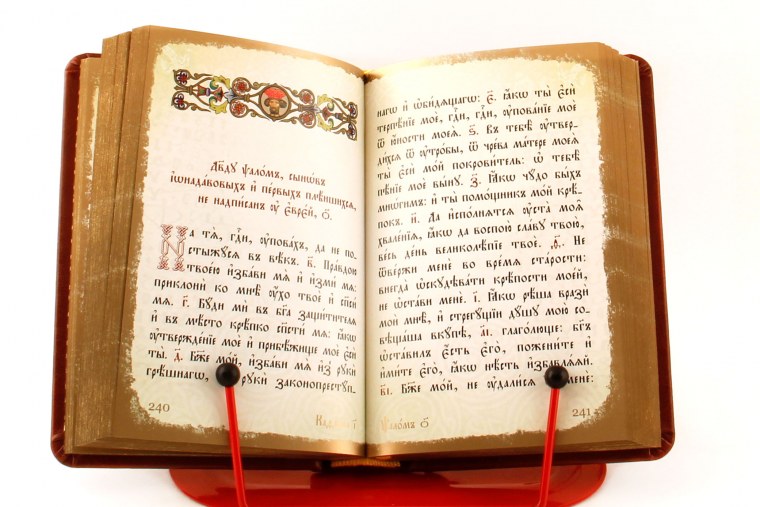 Дв҃ду ѱало́мъ, сынѡ́въ
і҆ѡнада́вовыхъ и҆ пе́рвыхъ плѣ́ншихсѧ,
не надпи́санъ ᲂу҆ є҆вре́й, ѻ҃.
На тѧ̀, гдⷭ҇и, ᲂу҆пова́хъ, да не по-
стыжꙋ́сѧ въ вѣ́къ. в҃. Пра́вдою
твое́ю и҆зба́ви мѧ̀ и҆ и҆змѝ мѧ̀:
приклонѝ ко мнѣ̀ ᲂу҆́хо твоѐ и҆ сп҃си́
мѧ. г҃. Бꙋ́ди мѝ въ бг҃а защи́тителѧ
и҆ въ мѣ́сто крѣ́пко сп҃стѝ мѧ̀: ꙗ҆́кѡ
ᲂу҆твержде́нїе моѐ и҆ прибѣ́жище моѐ є҆сѝ
ты̀. д҃. Бж҃е мо́й, и҆зба́ви мѧ̀ и҆з̾ рꙋкѝ
грѣ́шнагѡ, рꙋкѝ законопрестꙋ́п-
240
ѱало́мъ ѻ҃
нагѡ и҆ ѡ҆би́дѧщагѡ: є҃. ꙗ҆́кѡ ты̀ є҆сѝ
терпѣ́нїе моѐ, гдⷭ҇и, гдⷭ҇и, ᲂу҆пова́нїе моѐ
ѿ ю҆́ности моеѧ̀. ѕ҃. Въ тебѣ̀ ᲂу҆твер-
ди́хсѧ ѿ ᲂу҆тро́бы, ѿ чре́ва ма́тере моеѧ̀
ты̀ є҆сѝ мо́й покрови́тель: ѡ҆ тебѣ̀
пѣ́нїе моѐ вы́нꙋ. з҃. Ꙗ҆́кѡ чꙋ́до бы́хъ
мнѡ́гимъ: и҆ ты̀ помо́щникъ мо́й крѣ́-
покъ. и҃. Да и҆спо́лнѧтсѧ ᲂу҆ста̀ моѧ̑
хвале́нїѧ, ꙗ҆́кѡ да воспою̀ сла́вꙋ твою̀,
ве́сь де́нь великолѣ́пїе твоѐ. ѳ҃. Не
ѿве́ржи менѐ во вре́мѧ ста́рости:
внегда̀ ѡ҆скꙋдѣва́ти крѣ́пости мое́й,
не ѡ҆ста́ви менѐ. і҃. Ꙗ҆́кѡ рѣ́ша вразѝ
моѝ мнѣ̀, и҆ стрегꙋ́щїи дꙋ́шꙋ мою̀ со-
вѣща́ша вкꙋ́пѣ, а҃і. глаго́люще: бг҃ъ
ѡ҆ста́вилъ є҆́сть є҆го̀, пожени́те и҆
и҆ми́те є҆го̀, ꙗ҆́кѡ нѣ́сть и҆збавлѧ́ѧй.
в҃і. Бж҃е мо́й, не ᲂу҆дали́сѧ менє̀:
241